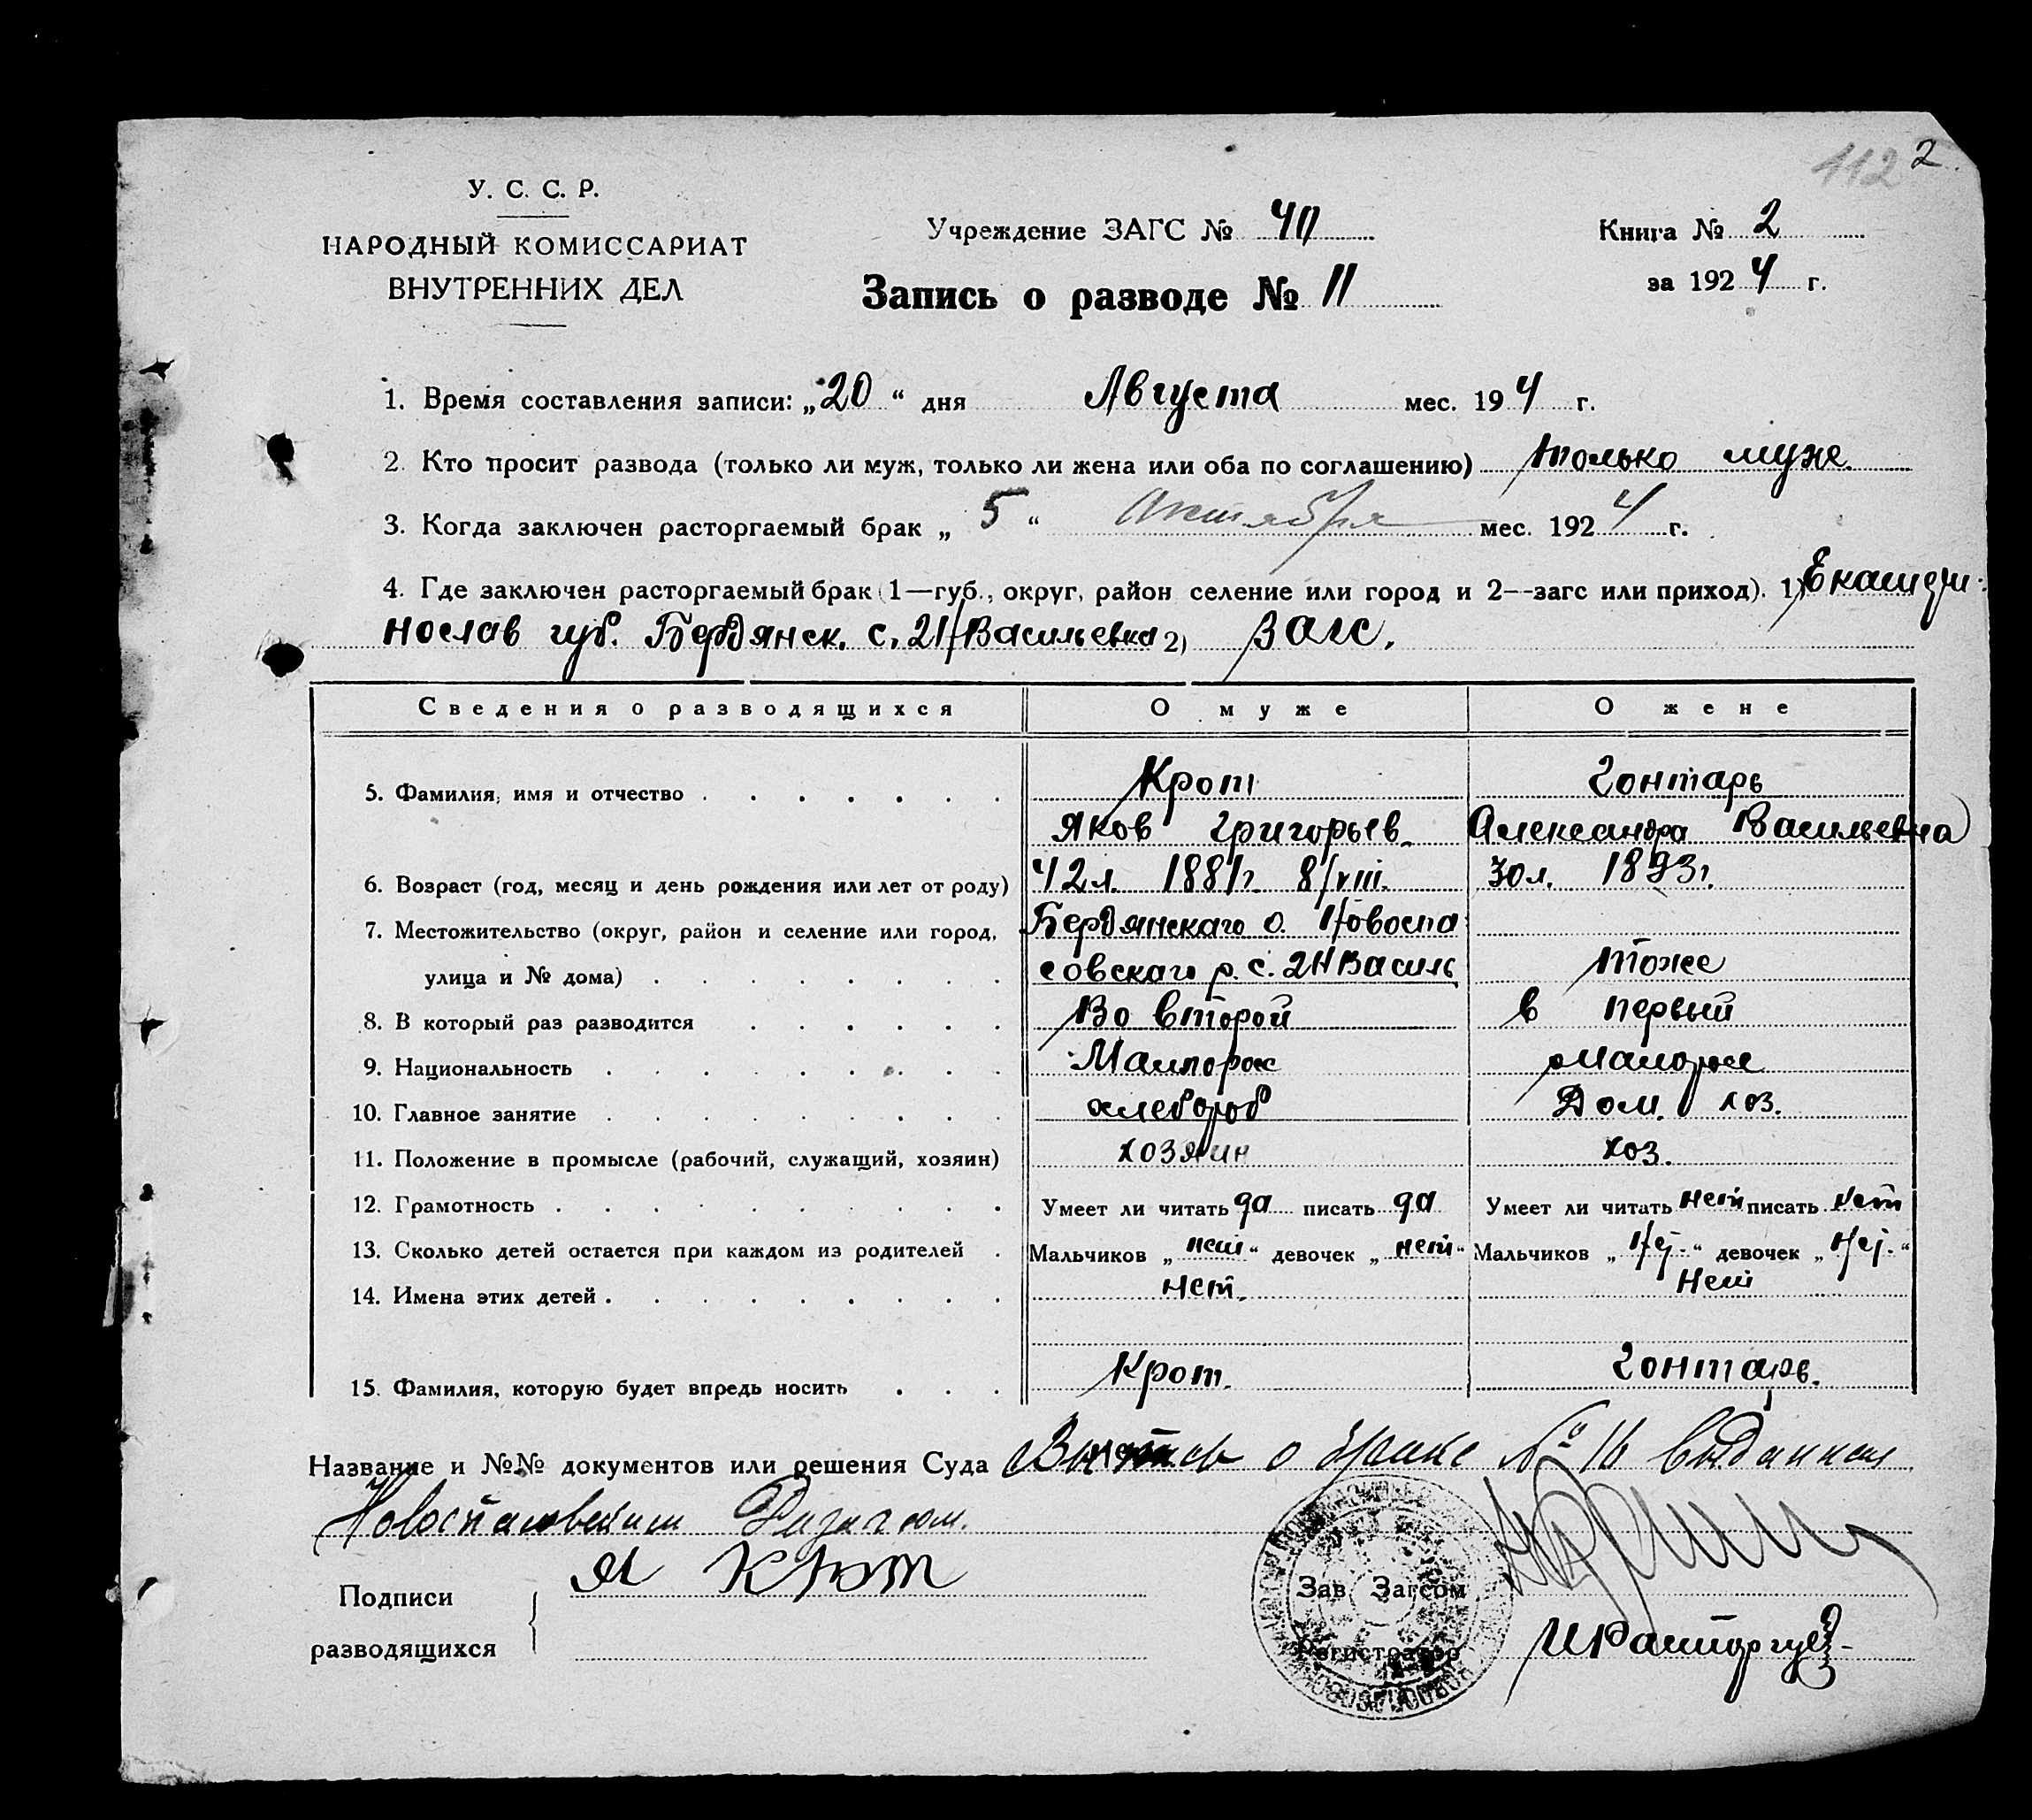 112 2
У. С. С. Р.
НАРОДНЫЙ КОМИССАРИАТ
ВНУТРЕННИХ ДЕЛ
Учреждение ЗАГС №
Запись о разводе № 11
Книга № 2
за 1924 г.
1. Время составления записи: „20“ дня Августа мес. 194 г.
2. Кто просит развода (только ли муж, только ли жена или оба по соглашению) только муж.
3. Когда заключен расторгаемый брак „5“ Октября мес. 1924 г.
4. Где заключен расторгаемый брак (1—губ., округ, район селение или город и 2—загс или приход). 1) Екатери-
нослав губ. Бердянск. с. 2 Н Васильевка 2) Загс.
Сведения о разводящихся О муже О жене
5. Фамилия, имя и отчество Крот Гонтарь
Яков Григорьев. Александра Васильевна
6. Возраст (год, месяц и день рождения или лет от роду) 42л. 1881г. 8/VIII. 30л. 1893г.
7. Местожительство (округ, район и селение или город, Бердянскаго о. Новоспа
улица и № дома) совскаго р. с. 2Н Василь Тоже
8. В который раз разводится Во второй в первый
9. Национальность Малорос Малорос
10. Главное занятие хлебороб Дом. хоз.
11. Положение в промысле (рабочий, служащий, хозяин) хозяин хоз.
12. Грамотность Умеет ли читать да писать да Умеет ли читать нет писать нет
13. Сколько детей остается при каждом из родителей Мальчиков „нет“ девочек „нет“ Мальчиков „ “ девочек „ “
14. Имена этих детей нет. нет
15. Фамилия, которую будет впредь носить Крот. Гонтарь.
Название и №№ документов или решения Суда Выпись о браке № 16 выданная
Новоспасовским
Подписи
разводящихся
Я Крот
Зав. Загсом
Регистратор